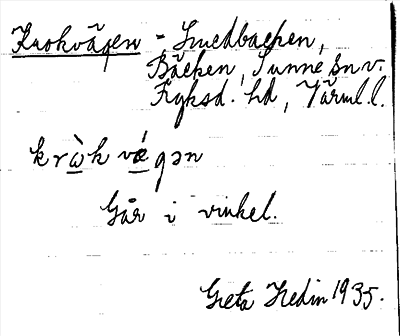 Krokvägen - Smedbacken,
Bäcken, Sunne sn.v.
Fryksd. hd, Värml.l.
kròk vǽgən
Går i vinkel.
Greta Hedin 1935.